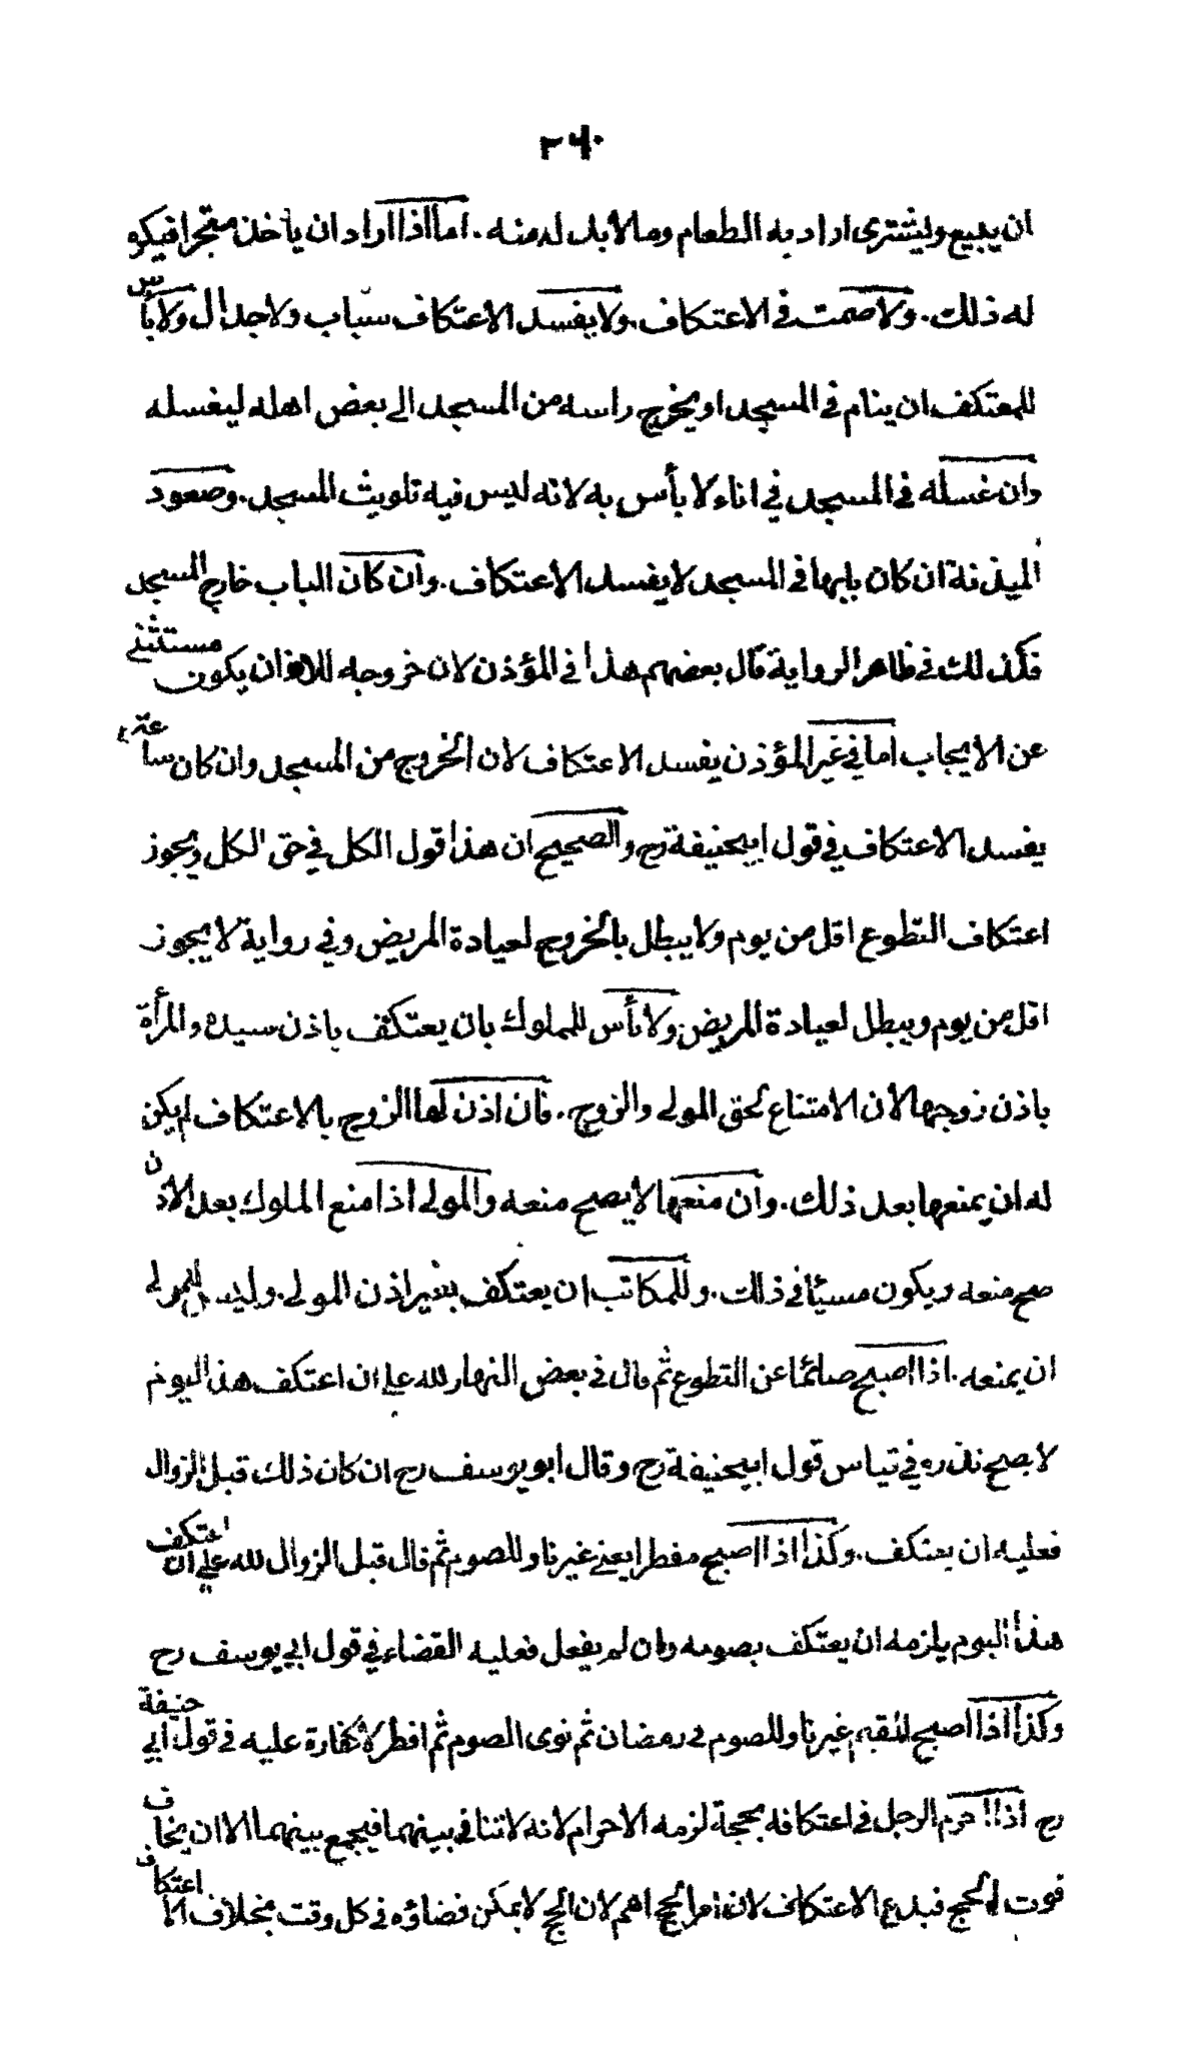 ٢٤٠
ان يبيع ويشترى اراد به الطعام وما لا بد له منه . اما اذا اراد ان ياخذ متجرا فيكره
له ذلك . ولا صمت فى الاعتكاف . ولا يفسد الاعتكاف سباب ولا جدال ولا بأس
للمعتكف ان ينام فى المسجد او يخرج راسه من المسجد الى بعض اهله ليغسله
وان غسله فى المسجد في اناء لا بأس به لانه ليس فيه تلويث المسجد . وصعود
الميذنة ان كان بابها فى المسجد لا يفسد الاعتكاف . وان كان الباب خارج المسجد
فكذلك فى ظاهر الرواية قال بعضهم هذا فى المؤذن لان خروجه للاذان يكون مستثنى
عن الايجاب اما في غير المؤذن يفسد الاعتكاف لان الخروج من المسجد وان كان ساعة
يفسد الاعتكاف في قول ابيحنيفة رح والصحيح ان هذا قول الكل في حق الكل ويجوز
اعتكاف التطوع اقل من يوم ولا يبطل بالخروج لعيادة المريض وفي رواية لا يجوز
اقل من يوم ويبطل لعيادة المريض . ولا بأس للمملوك بان يعتكف باذن سيده والمرأة
باذن زوجها لان الامتناع لحق المولى والزوج . فان اذن لها الزوج بالاعتكاف لم يكن
له ان يمنعها بعد ذلك . وان منعها لا يصح منعه والمولى اذا منع المملوك بعد الاذن
صح منعه ويكون مسيئا في ذلك . وللمكاتب ان يعتكف بغير اذن المولى . وليس للمولى
ان يمنعه . اذا اصبح صائما عن التطوع ثم قال فى بعض النهار لله علي ان اعتكف هذا اليوم
لا يصح نذره في قياس قول ابيحنيفة رح وقال ابو يوسف رح ان كان ذلك قبل الزوال
فعليه ان يعتكف . وكذا اذا اصبح مفطرا يعنى غير ناو للصوم ثم قال قبل الزوال لله علي ان اعتكف
هذا اليوم يلزمه ان يعتكف بصومه وان لم يفعل فعليه القضاء في قول ابي يوسف رح
وكذا اذا اصبح المقيم غير ناو للصوم فى رمضان ثم نوى الصوم ثم افطر لا كفارة عليه فى قول ابي حنيفة
رح اذا احرم الرجل فى اعتكافه بحجة لزمه الاحرام لانه لا تنافي بينهما فيجمع بينهما الا ان يخاف
فوت الحج فيدع الاعتكاف لان امر الحج اهم لان الحج لا يمكن قضاؤه فى كل وقت بخلاف الاعتكاف